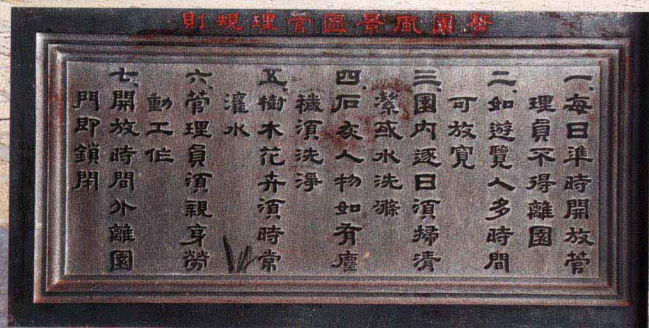 園風景區管理規則
一、每日準時開放管
理員不得離園
二、如遊覽人多時間
可放寬
三、園內逐日須掃清
潔或水洗滌
四、石亥人物如有塵
穢須洗淨
五、樹木花卉須時常
灌水
六、管理員須親身勞
動工作
七、開放時間外離園
門即鎖閉